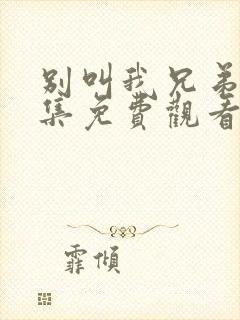 别叫我兄弟
集免費觀看
霏傾